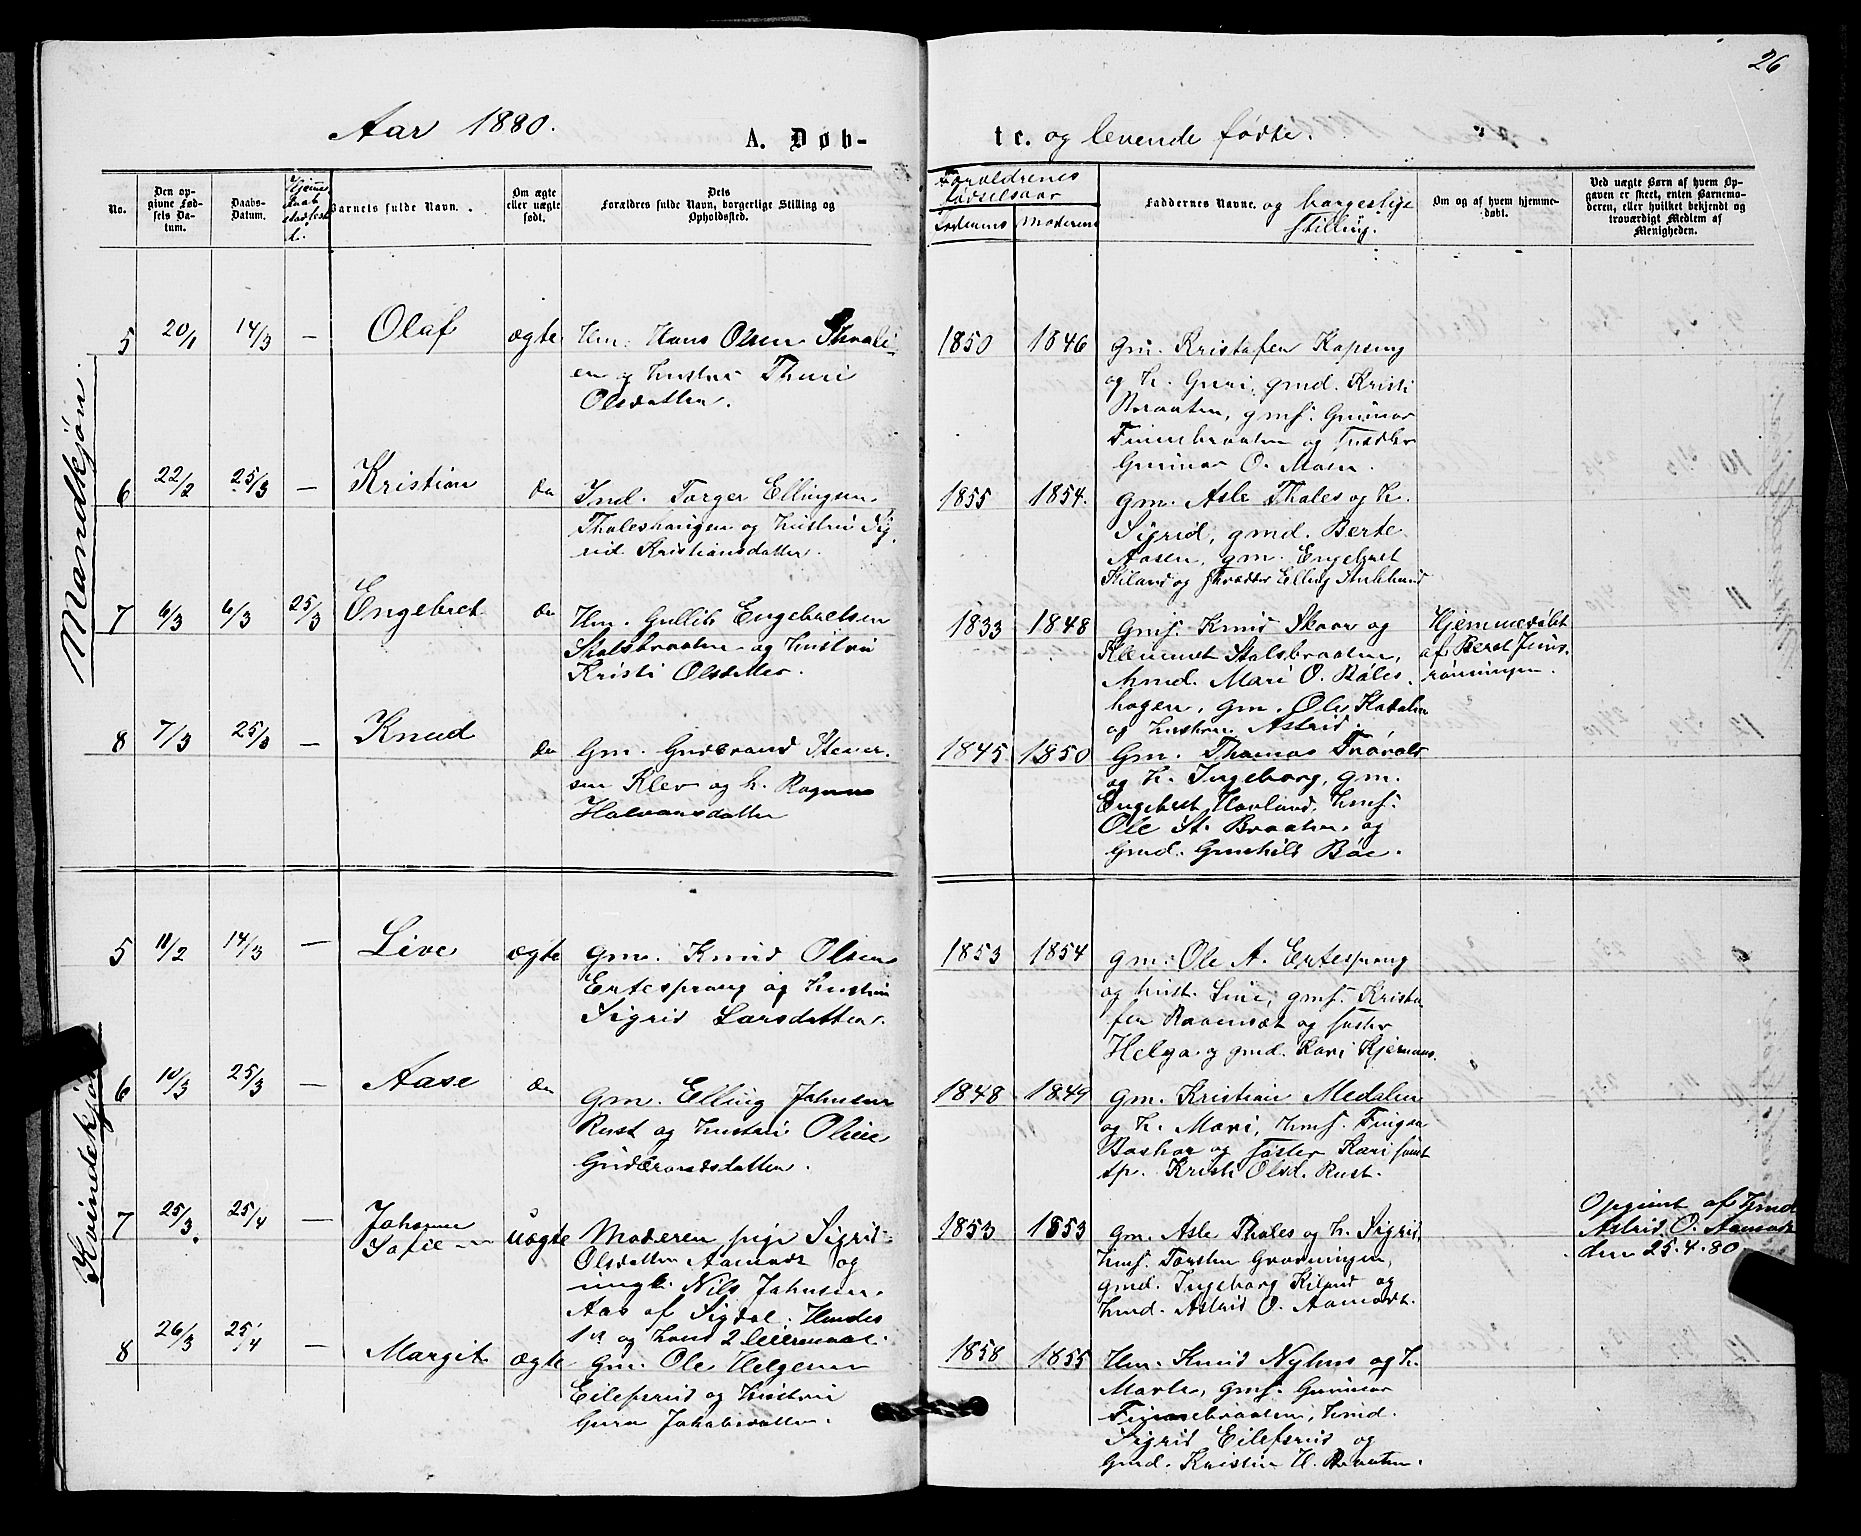 26
Aar 1880.
A. Døb-
te. og levende fødte.
No.
Den op-
givne Fød-
sels Da-
tum.
Daabs-
Datum.
Barnets fulde Navn.
Om ægte
eller uægte
født.
Dets
Forældres fulde Navn, borgerlige Stilling og
Opholdssted.
Forældrenes
fødselsaar
Faderens
Moderens
Faddernes Navne. og borgerlige
stilling.
Om og af hvem hjemme-
døbt.
Ved uægte Børn af hvem Op-
gaven er skeet, enten Barnemo-
deren, eller hvilket bekjendt og
troværdigt Medlem af
Menigheden.
Mandkjøn.
5 20/1 14/3 — Olaf ægte
Hm. Hans Olsen
en og hustru Thuri
Olsdatter.
1850 1846
Gm. Kristofer Kopseng
og h. Guri, gmd. Kristi
Braaten, gmf. Gunnar
Finnebraaten og
Gunnar O. Moen.
6 22/2 25/3 — Kristian do
Ind. Torger Ellingsen
Thaleshaugen og hustru Sig-
rid Kristiansdatter.
1855 1854.
Gm. Asle Thales og h.
Sigrid, gmd. Berte
Aasen, gm. Engebret
Kiland og Elling
7 6/3 6/3 25/3 Engebret do
Hm. Gullik Engebretsen
Stalsbraaten og hustru
Kristi Olsdatter.
1833 1848
Gmf. Knud Skaar og
Klemmet Stalsbraaten,
hmd. Mari O. Bøles-
hagen, gm. Ole
og hustru Astrid.
Hjemmedøbt
af Beret
rønningen.
8 7/3 25/3 — Knud do
Gm. Gudbrand Stener-
sen Klev og h. Ragne
Halvorsdatter
1845 1850
Gm. Thomas
og h. Ingeborg, gm.
Engebret Hovland, hmf.
Ole St. Braaten, og
Gmd. Gunhild Bøe.
Kvindekjøn
5 11/2 14/3 — Live ægte
Gm. Knud Olsen
Ertesprang og hustru
Sigrid Larsdatter.
1853 1854
Gm. Ole A. Ertesprang
og hust. Live, gmf. Kristo-
fer Ravensæt og søster
Helga og gmd. Kari
6 10/3 25/3 — Aase do
Gm. Elling Johnsen
Rust og hustru Oline
Gudbrandsdatter.
1848 1849
Gm. Kristian Medalen
og h. Mari, hmf. Fingar
og søster Kari samt
sp. Kristi Olsd. Rust.
7 25/3 25/4 — Johanne
Sofie uægte
Moderen pige Sigrid
Olsdatter Aamodt og
ungk. Nils Johnsen
Aas af Sigdal. Hendes
1st og hans 2 leiermaal.
1853 1853
Gm. Asle Thales og h. Sigrid,
hmf. Torsten Grønningen,
gmd. Ingeborg Kiland og
hmd. Astrid O. Aamodt.
Opgivet af hmd.
Astrid O. Aamodt
den 25.4.80
8 26/3 25/4 — Margit ægte
Gm. Ole Helgesen
Eilefsrud og hustru
Guro Jakobsdatter.
1858 1855
Hm. Knud Nyhus og h.
Marte, gmf. Gunnar
Finnebraaten, hmd.
Sigrid Eilefsrud og
Gmd. Kristin H. Braaten.